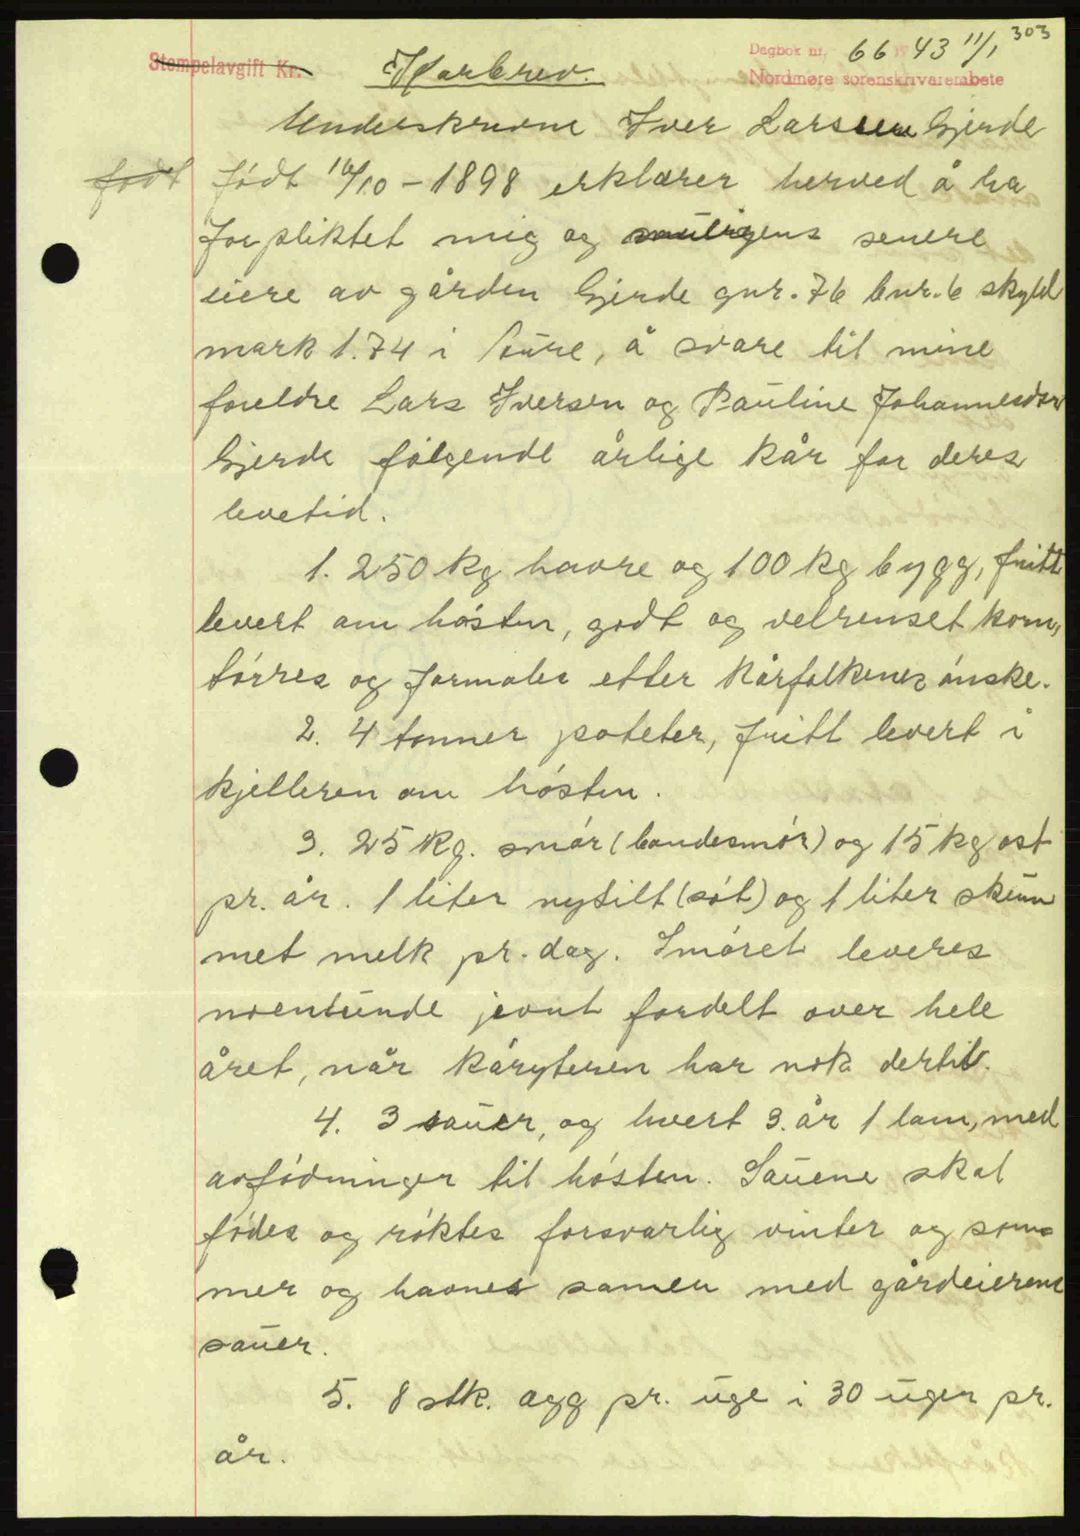 303
Stempelavgift Kr.
Dagbok nr. 66 19 43 11/1
Nordmøre sorenskrivarembete
Kårbrev.
Underskrevne Iver Larsen Gjerde
født født 16/10-1898 erklærer herved å ha
forpliktet mig og senere
eiere av gården Gjerde gnr. 76 bnr. 6 skyld
mark 1.74 i Aure, å svare til mine
foreldre Lars Iversen og Pauline Johannesdtr
Gjerde følgende årlige kår for deres
levetid.
1. 250 kg havre og 100 kg bygg, fritt
levert om høsten, godt og velrenset korn,
tørres og formales etter kårfolkenes ønske.
2. 4 tonner poteter, fritt levert i
kjelleren om høsten.
3. 25 kg. smør (bondesmør) og 15 kg ost
pr. år. 1 liter nysilt (søt) og 1 liter skum
met melk pr. dag. Smøret leveres
noenlunde jevnt fordelt over hele
året, når kåryteren har nok dertil.
4. 3 sauer, og hvert 3. år 1 lam, med
avfødninger til høsten. Sauene skal
fødes og røktes forsvarlig vinter og som-
mer og havnes samen med gårdeierens
sauer.
5. 8 stk. egg pr. uge i 30 uger pr.
år.